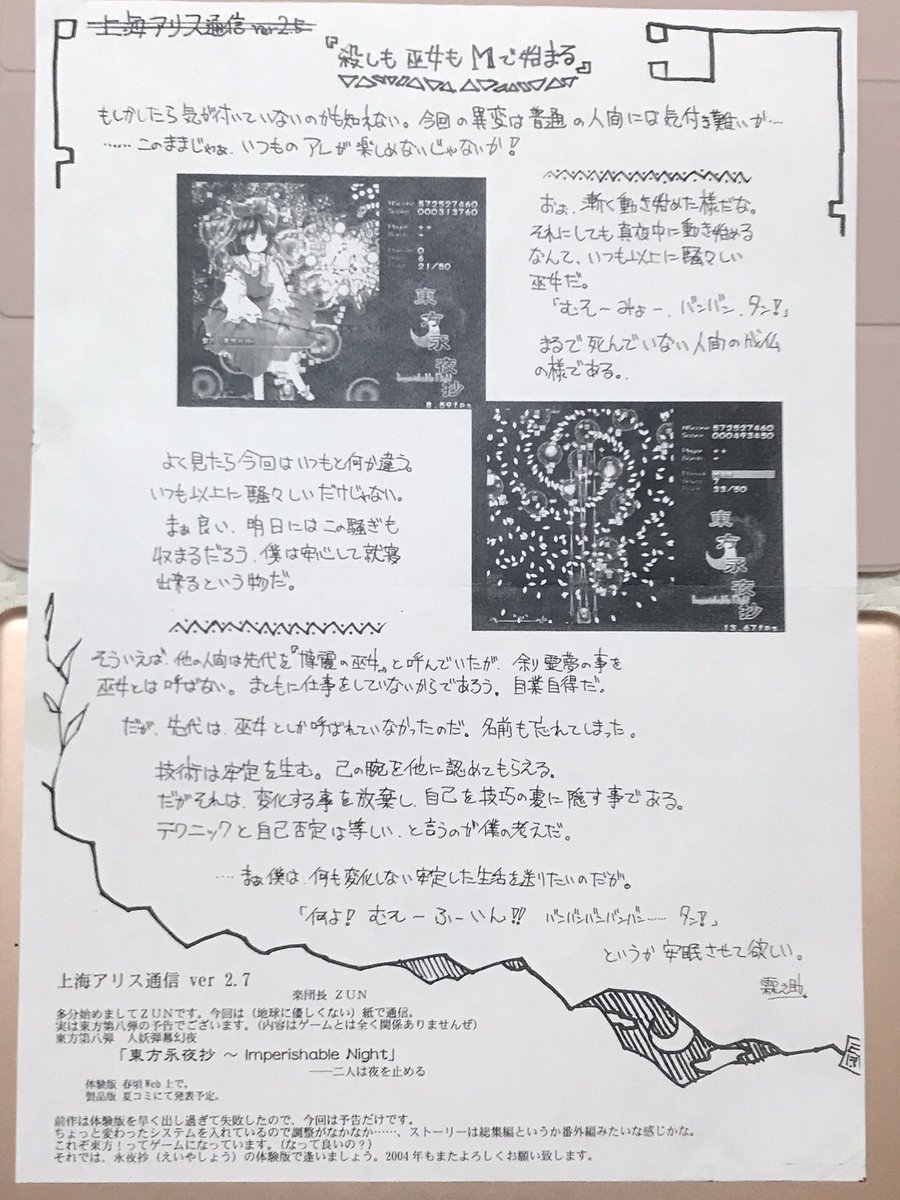 上海アリス通信 ver2.5
『殺しも巫女もMで始まる』
もしかしたら気が付いていないのかも知れない。今回の異変は普通の人間には気付き難いか…
……このままじゃぁ、いつものアレが楽しめないじゃないか!
おぉ、漸く動き始めた様だな。
それにしても真夜中に動き始める
なんて、いつも以上に騒々しい
巫女だ。
「むそーみょー、バンバン、タン!」
まるで死んでいない人間の成仏
の様である。
HiScore 572527460
Score 000313760
Player ★★
Bomb
0
6
21/50
東方永夜抄
Imperishable Night
8.59fps
HiScore 572527460
Score 000493450
Player ★★
Bomb
7
33/50
東方永夜抄
Imperishable Night
13.67fps
よく見たら今回はいつもと何か違う。
いつも以上に騒々しいだけじゃない。
まぁ良い、明日にはこの騒ぎも
収まるだろう、僕は安心して就寝
出来るという物だ。
そういえば、他の人間は先代を『博麗の巫女』と呼んでいたが、余り霊夢の事を
巫女とは呼ばない。まともに仕事をしていないからであろう。自業自得だ。
だが、先代は、巫女としか呼ばれていなかったのだ。名前も忘れてしまった。
技術は安定を生む。己の腕を他に認めてもらえる。
だがそれは、変化する事を放棄し、自己を技巧の裏に隠す事である。
テクニックと自己否定は等しい、と言うのが僕の考えだ。
…まぁ僕は、何も変化しない安定した生活を送りたいのだが。
「何よ! むそーふーいん!! バンバンバンバンバン…… タン!」
というか安眠させて欲しい。
霖之助。
上海アリス通信 ver 2.7
楽団長 ZUN
多分始めましてZUNです。今回は(地球に優しくない)紙で通信。
実は東方第八弾の予告でございます。(内容はゲームとは全く関係ありませんぜ)
東方第八弾 人妖弾幕幻夜
「東方永夜抄 ~ Imperishable Night」
――二人は夜を止める
体験版 春頃Web上で。
製品版 夏コミにて発表予定。
前作は体験版を早く出し過ぎて失敗したので、今回は予告だけです。
ちょっと変わったシステムを入れているので調整がなかなか……、ストーリーは総集編というか番外編みたいな感じかな。
これぞ東方!ってゲームになっています。(なって良いの?)
それでは、永夜抄(えいやしょう)の体験版で逢いましょう。2004年もまたよろしくお願い致します。